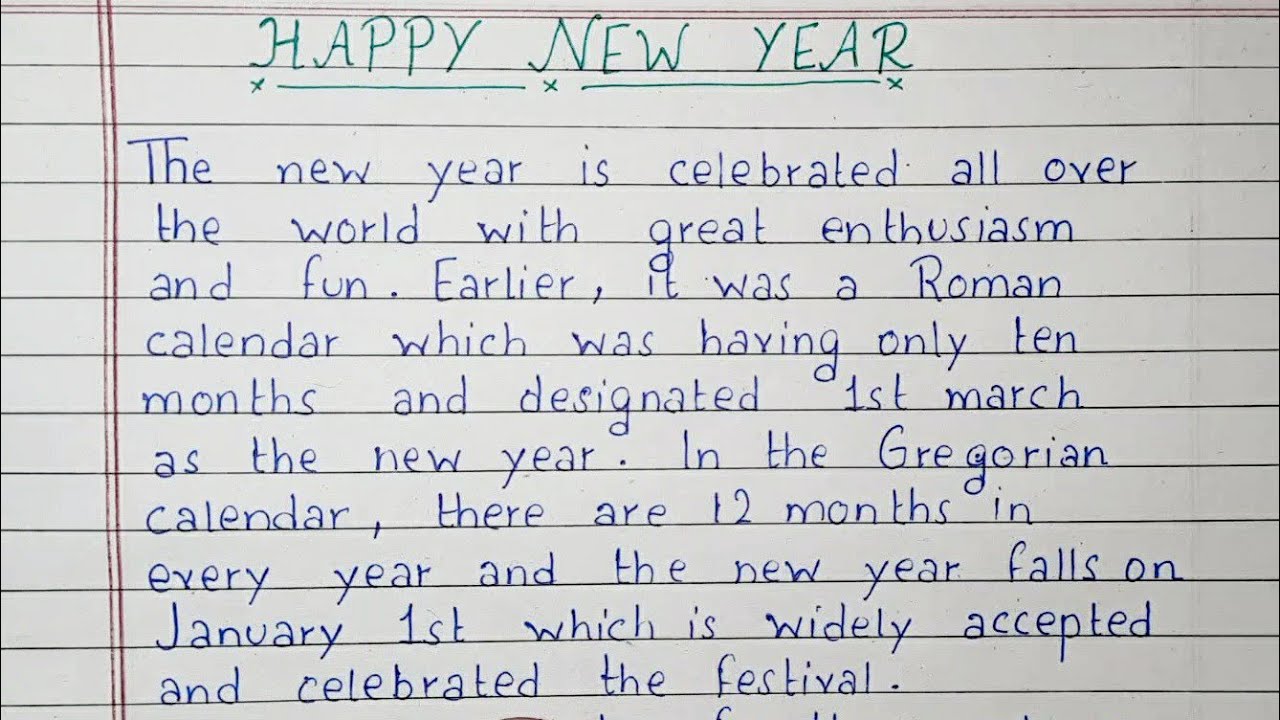 HAPPY NEW YEAR
The new year is celebrated all over
the world with great enthusiasm
and fun. Earlier, it was a Roman
calendar which was having only ten
months and designated 1st march
as the new year. In the Gregorian
calendar, there are 12 months in
every year and the new year falls on
January 1st which is widely accepted
and celebrated the festival.